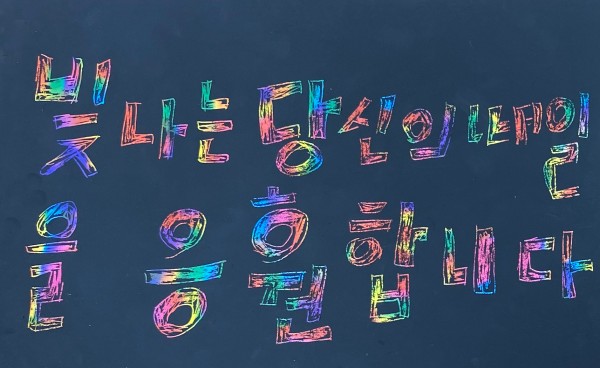 빛나는 당신의 내일
을 응훤합니다